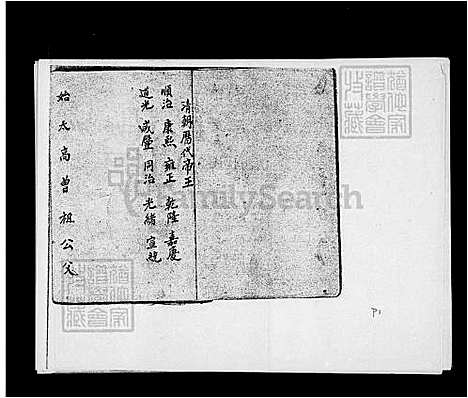 清朝歷代帝王
順治 康熙 雍正 乾隆 嘉慶
道光 咸豐 同治 光緒 宣統
始太高曾祖公父
FamilySearch
P1